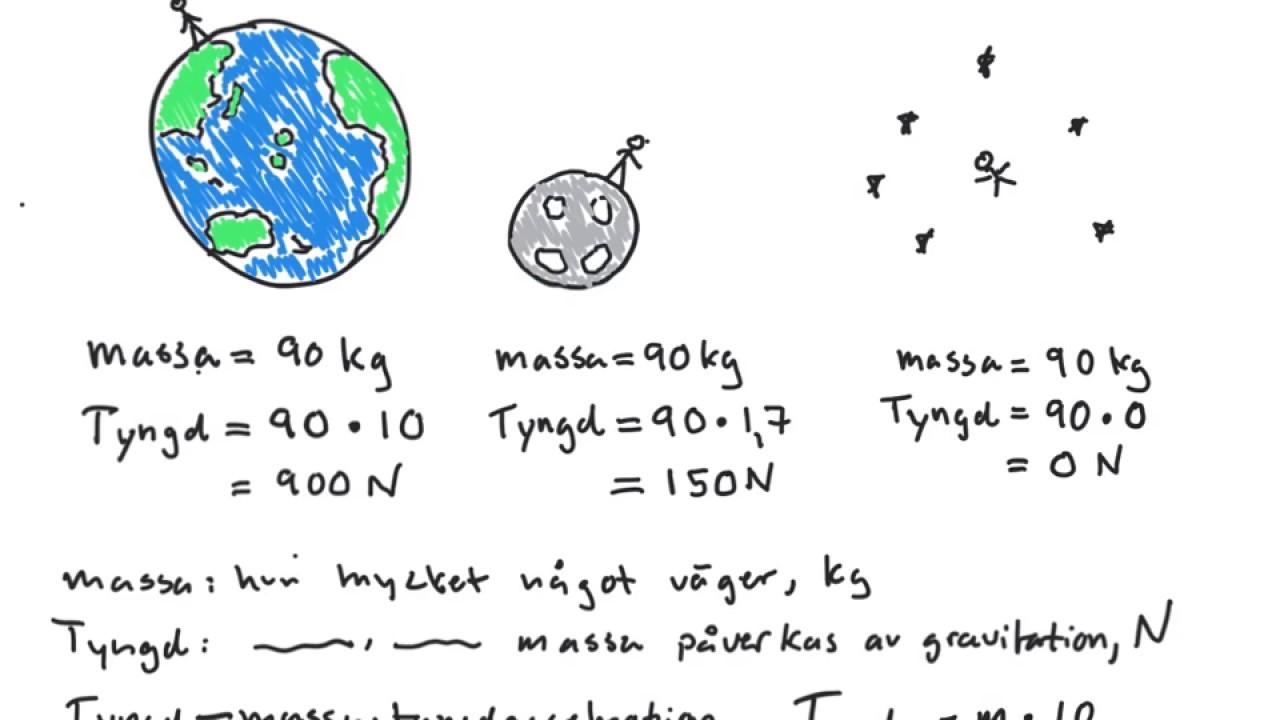 massa = 90 kg
Tyngd = 90 · 10
= 900 N
massa = 90 kg
Tyngd = 90 · 1,7
= 150 N
massa = 90 kg
Tyngd = 90 · 0
= 0 N
massa: hur mycket något väger, kg
Tyngd: massa påverkas av gravitation, N